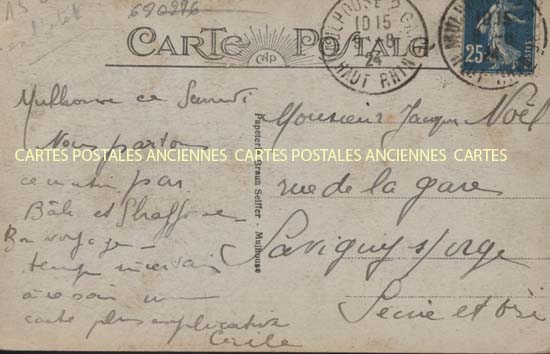 690296
CARTE POSTALE
CNP
MULHOUSE
10 15
24
HAUT RHIN
25
POSTES
Mulhouse ce Samedi
Nous partons
ce matin par
Bâle et
Bon voyage –
temps incertain
à ce soir une
carte plus explicative
Cécile
Papeterie Braun Seiffer - Mulhouse
Monsieur Jacques Noël
rue de la gare
Savigny s/orge
Seine et Oise
CARTES POSTALES ANCIENNES CARTES POSTALES ANCIENNES CARTES